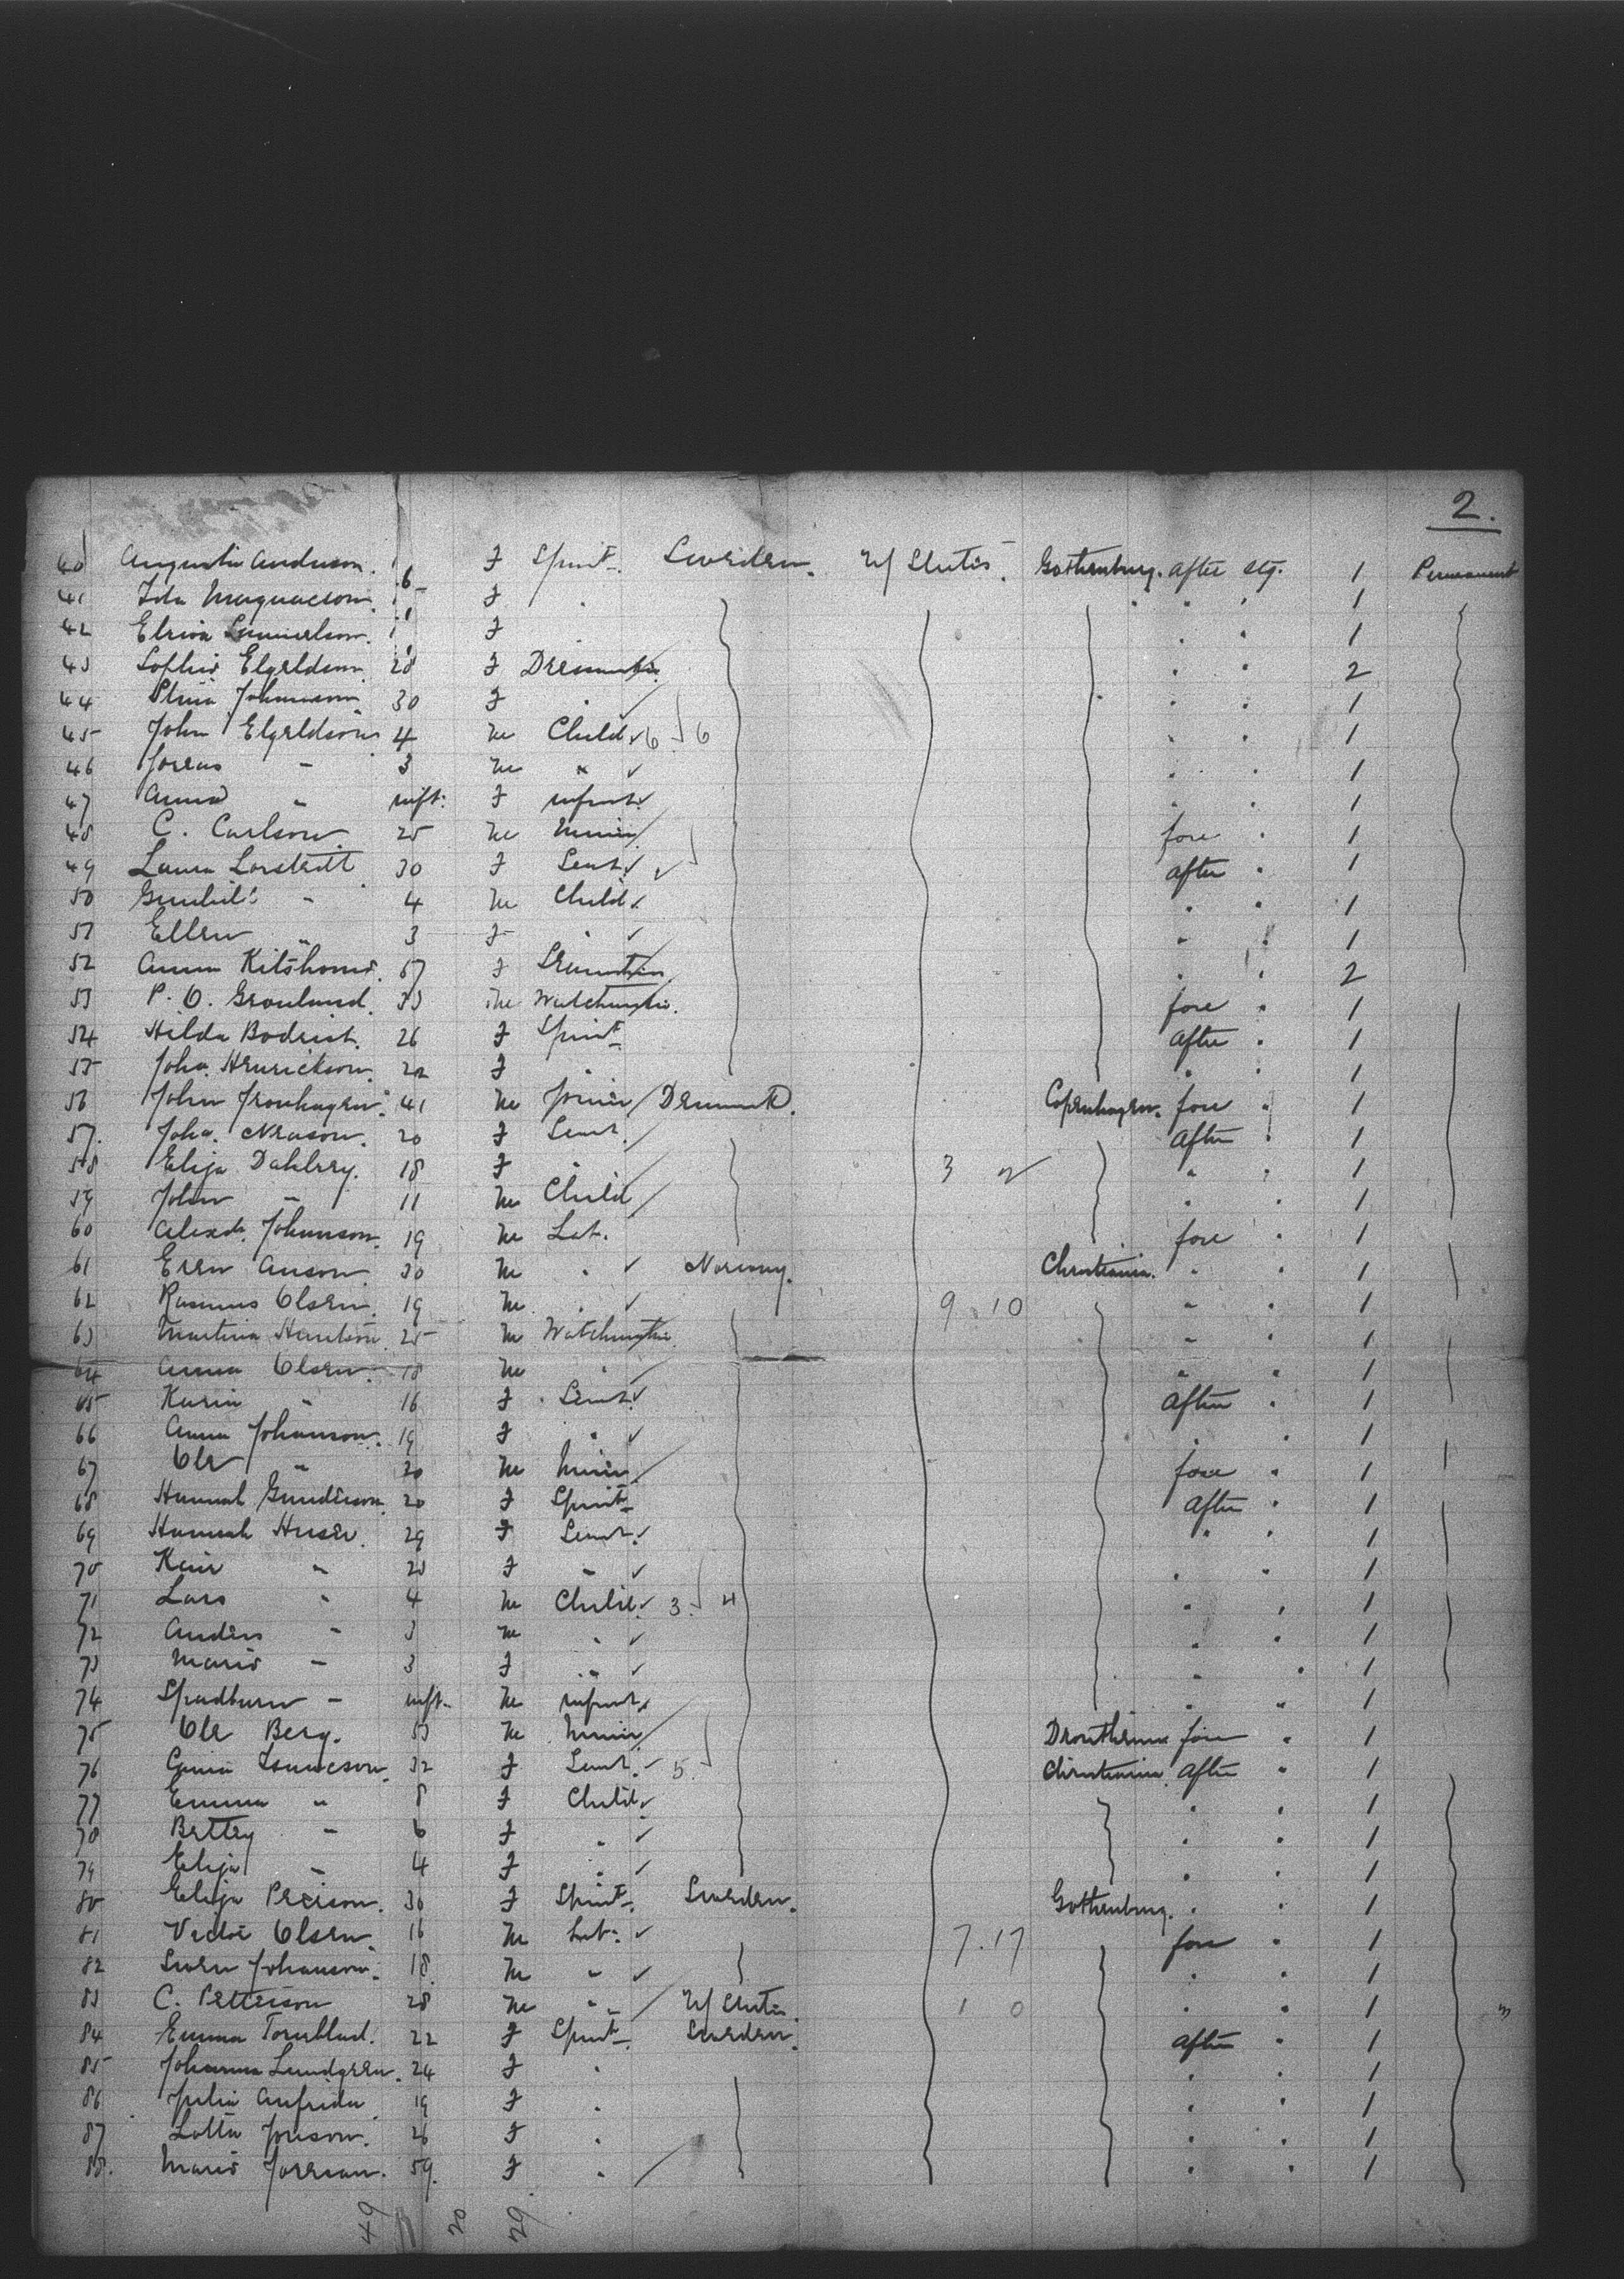 2.
40 Augusta Anderson. F Spinst. Sweden. U/States. Gothenburg. after stg. 1 Permanent
41 Ida Magnacson. F " " " 1
42 Elrina Samuelson. F " " " 1
43 Sophia Elgeldson 28 F Dressmkr. " " 2
44 Stina Johanson 30 F " " " 1
45 John Elgeldson 4 M Child 6 6 " " 1
46 Joreas " 3 M " " " 1
47 Anna " inft. F infant " " 1
48 C. Carlson 25 M Miner fore " 1
49 Laura Lorstedt 30 F Servt. after " 1
50 " 4 M Child " " 1
51 Ellen " 3 F " " " 1
52 Anna Kitshoms. 57 F " " 2
53 P. O. Gronlund. 33 M Watchmkr. fore " 1
54 Hilda Bodrist. 26 F Spinst. after " 1
55 Joha. Henrickson. 22 F " " " 1
56 John Fronhagen. 41 M Joiner Denmark. Copenhagen. fore " 1
57. Joha. Nenson. 20 F Servt. after " 1
58 Elija Dahlrey. 18 F " 3 2 " " 1
59 John " 11 M Child " " 1
60 Alexdr. Johanson. 19 M Lab. fore " 1
61 Eren Anson. 30 M " Norway. Christiania. " " 1
62 Rasmus Olsen. 19 M " 9 . 10 " " 1
63 Martina Hanson 25 M Watchmkr. " " 1
64 Anna Olsen. 18 M " " " 1
65 Karin " 16 F Servt. after " 1
66 Anna Johanson. 19 F " " " 1
67 Ole " 20 M Miner fore " 1
68 Hannah Gunderson 20 F Spinst. after " 1
69 Hannah Huser. 29 F Servt. " " 1
70 " F " " " 1
71 Lars " 4 M Child 3 4 " " 1
72 Anders " 3 M " " " 1
73 Maria " 3 F " " " 1
74 " inft. M infant " " 1
75 Ole Berg. 53 M Miner Drontheim fore " 1
76 Isaacson. 32 F Servt. 5 Christiania. after " 1
77 Emma " 8 F Child " " 1
78 Bettey " 6 F " " " 1
79 Elija " 4 F " " " 1
80 Elija Peerson. 30 F Spinst. Sweden. Gothenburg. " " 1
81 Victor Olsen. 16 M Lab. 7.17 fore " 1
82 Swen Johanson. 18 M " " " 1
83 C. Petterson 28 M " U/States. 1 0 " " 1
84 Emma Tornblad. 22 F Spinst. Sweden. after " 1
85 Johanna Lundgren. 24 F " " " 1
86 Julia Anfrida 19 F " " " 1
87 Lotta Jonson. 26 F " " " 1
88. Maria Jorrian. 59. F " " " 1
49 20 29